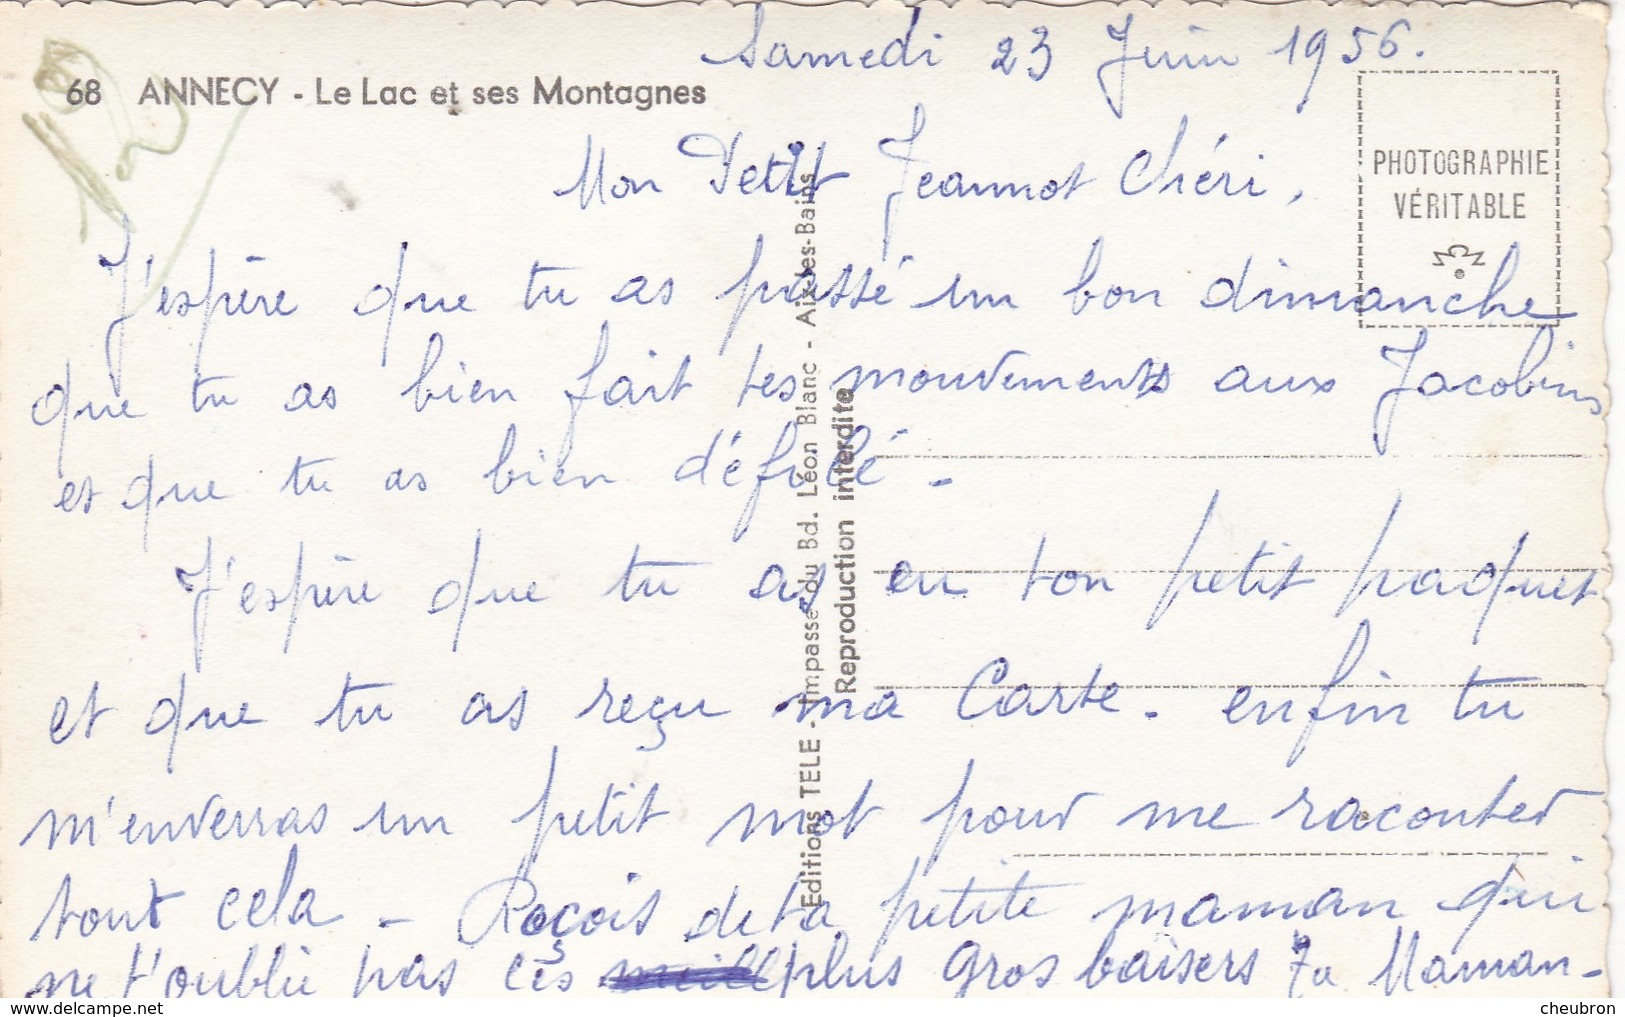 Samedi 23 Juin 1956.
68 ANNECY - Le Lac et ses Montagnes
PHOTOGRAPHIE
VÉRITABLE
Mon Petit Jeannot Chéri,
J'espère que tu as passé un bon dimanche
que tu as bien fait tes mouvements aux Jacobins
et que tu as bien défilé -
J'espère que tu as eu ton petit paquet
et que tu as reçu ma Carte - enfin tu
m'enverras un petit mot pour me raconter
tout cela - Reçois de ta petite maman qui
ne t'oublie pas ces plus gros baisers Ta Maman -
Editions TELE - Impasse du Bd. Léon Blanc - Aix-les-Bains
Reproduction interdite
www.delcampe.net
cheubron